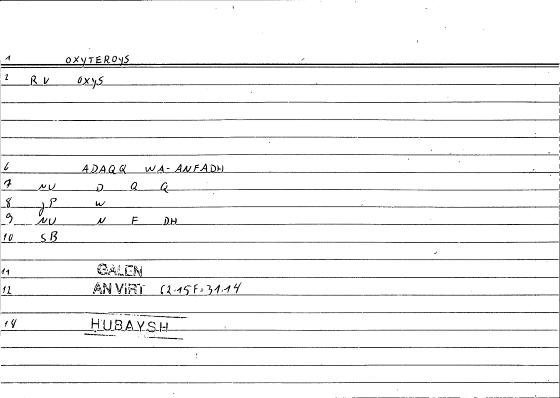 1 OXYTEROYS
2 RV OXYS
6 ADAQQ WA-ANFADH
7 NU D Q Q
8 JP W
9 NU N F DH
10 SB
11 GALEN
12 AN VIRT 62.15F=31.14
14 HUBAYSH